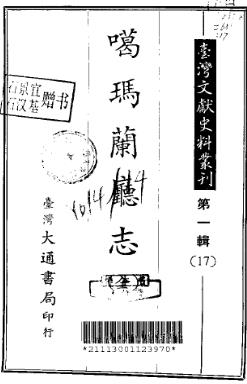 臺灣文獻史料叢刊
第一輯
(17)
噶瑪蘭廳志
臺灣
大通書局
印行
石景宜
石汉基
赠书
*21113001123970*